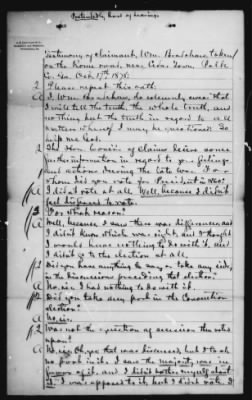 Testimony of claimant, Wm. Bradshaw, taken
on the home road, near Cedar Town, Polk
Co. Ga. Oct. 17th 1878.
Q Please repeat this oath.
A I, Wm. Bradshaw, do solemnly swear that
I will tell the truth, the whole truth, and
nothing but the truth in regard to all
matters whereof I may be questioned. So
help me God.
Q The Hon. Com'rs of claims desire some
further information in regard to your feelings
and actions during the late war. For
whom did you vote for President in 1860?
A I didn't vote at all. Well, because I didn't
feel disposed to vote.
Q For what reason?
A Well, because I saw there was differences, and
I didn't know which was right, and I thought
I would have nothing to do with it, and
I didn't go to the election at all.
Q Did you have anything to say or take any side,
in the discussions preceding that election?
A No, sir, I had nothing to do with it.
Q Did you take any part in the Convention
election?
A No, sir.
Q Was not the question of secession the votes
upon?
A No, sir. Oh, yes that was discussed, but I took
no part in it. I saw the majority was in
favor of it, and I didn't bother myself about
it. I was opposed to it, but I didn't vote. I